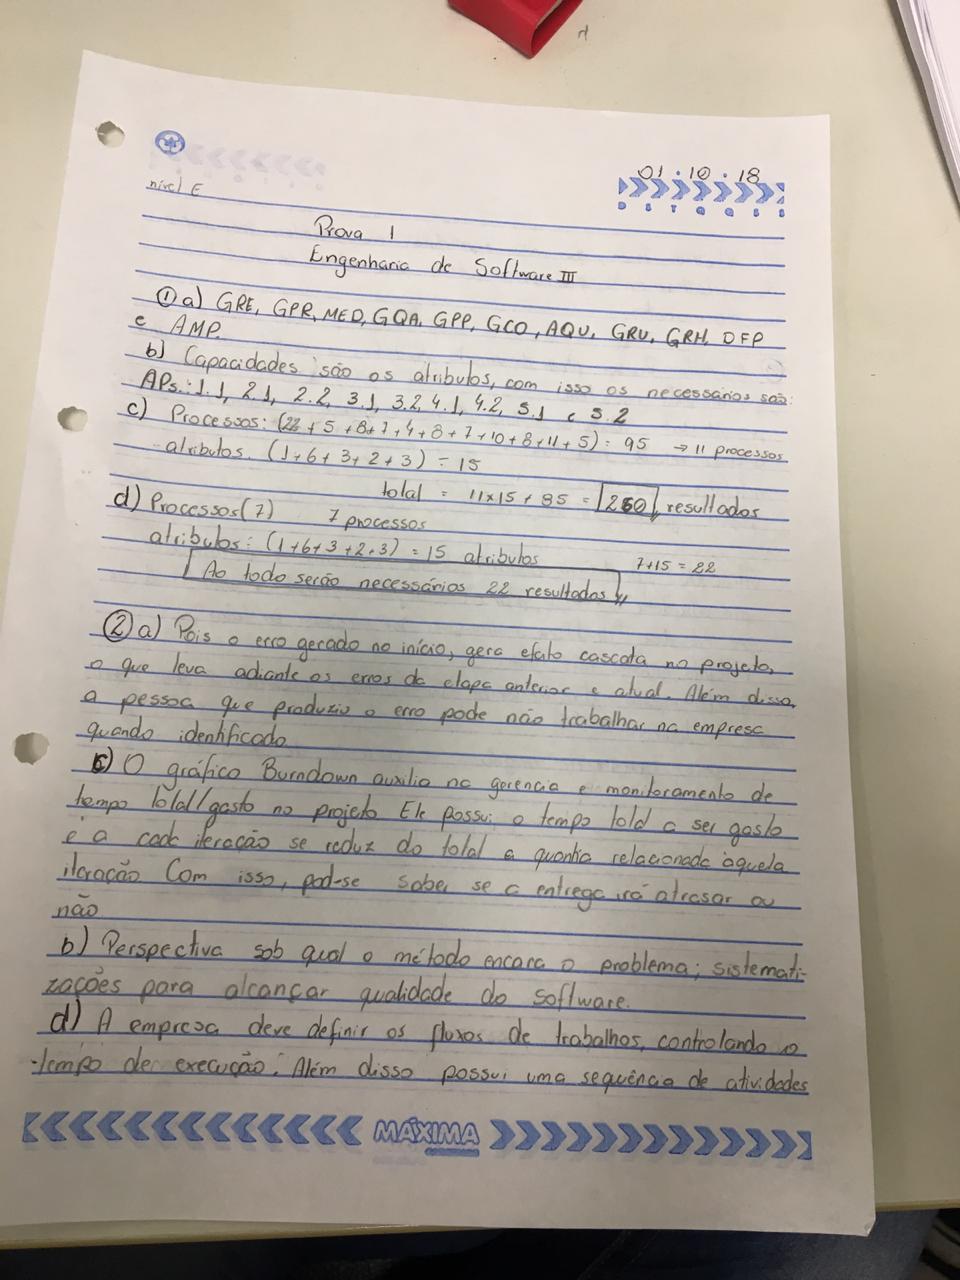 01 · 10 · 18
nível E
D S T Q Q S S
Prova 1
Engenharia de Software III
① a) GRE, GPR, MED, GQA, GPP, GCO, AQU, GRU, GRH, DFP
e AMP.
b) Capacidades são os atributos, com isso os necessários são:
APs: 1.1, 2.1, 2.2, 3.1, 3.2, 4.1, 4.2, 5.1 e 5.2
c) Processos: (22 + 5 + 8 + 7 + 4 + 8 + 7 + 10 + 8 + 11 + 5) = 95 → 11 processos
atributos. (1 + 6 + 3 + 2 + 3) = 15
total = 11x15 + 85 = 260 resultados
d) Processos (7) 7 processos
atributos: (1+6+3+2+3) = 15 atributos 7+15 = 22
Ao todo serão necessários 22 resultados
② a) Pois o erro gerado no início, gera efeito cascata no projeto,
o que leva adiante os erros da etapa anterior e atual. Além disso,
a pessoa que produziu o erro pode não trabalhar na empresa
quando identificado
c) O gráfico Burndown auxilia na gerencia e monitoramento de
tempo total/gasto no projeto Ele possui o tempo total a ser gasto
e a cada iteração se reduz do total a quantia relacionada àquela
iteração Com isso, pod-se saber se a entrega irá atrasar ou
não
b) Perspectiva sob qual o método encara o problema; sistemati-
zações para alcançar qualidade do software.
d) A empresa deve definir os fluxos de trabalhos, controlando o
tempo de execução. Além disso possui uma sequência de atividades
MÁXIMA